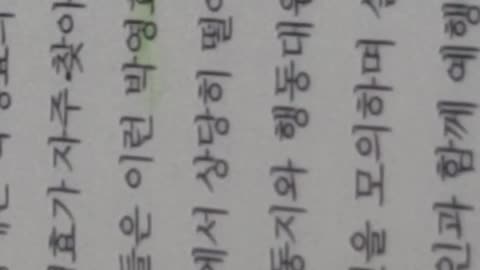 효가 자주 찾아
들은 이런 박영효
에서 상당히 떨어
동지와 행동대원
을 모의하며
인과 함께 예행